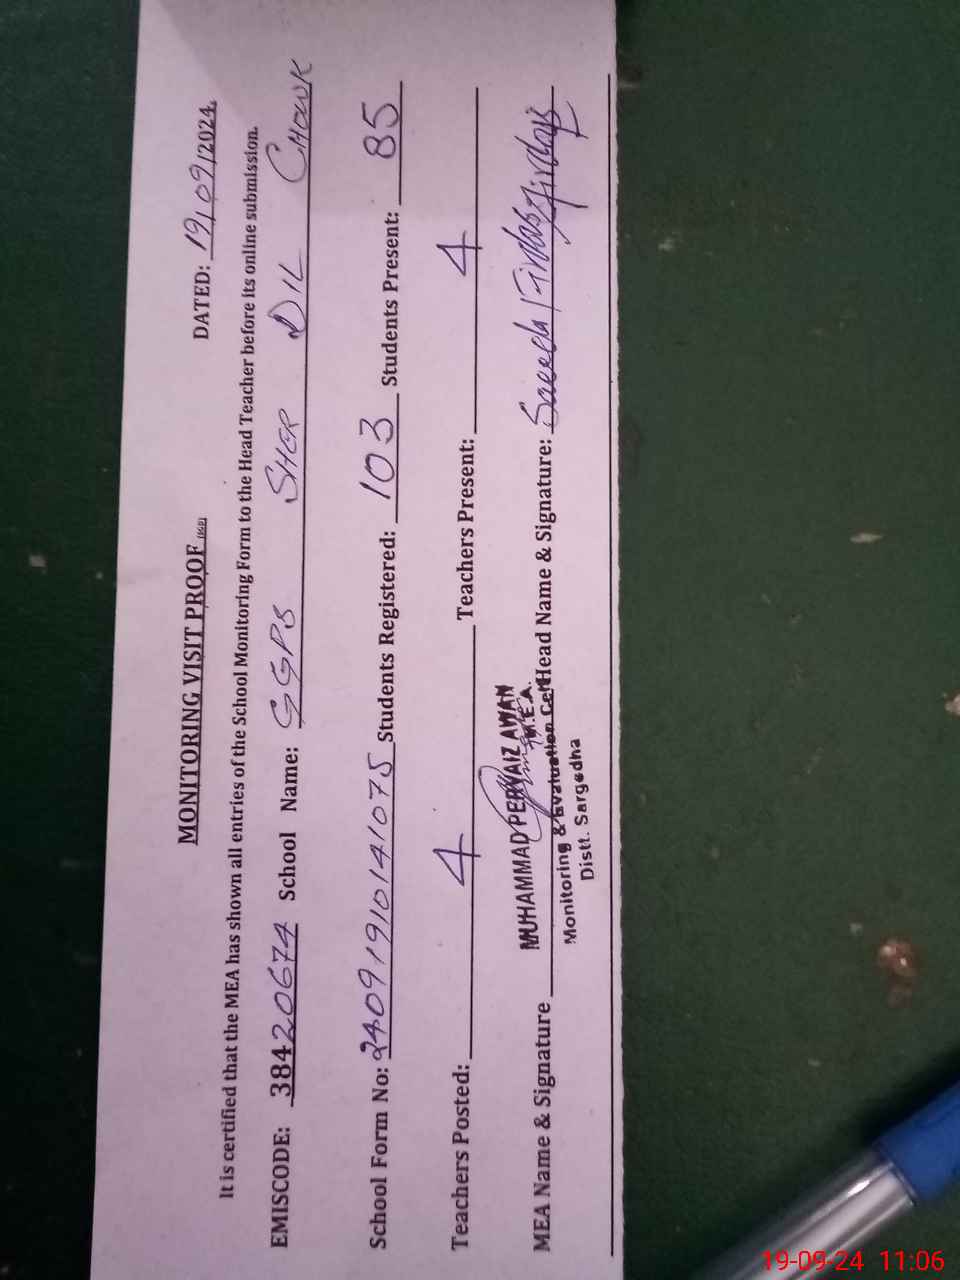 MONITORING VISIT PROOF
DATED: 19/09/2024.
It is certified that the MEA has shown all entries of the School Monitoring Form to the Head Teacher before its online submission.
EMISCODE: 38420674 School Name: GGPS SHER DIL CHOWK
School Form No: 24091910141075 Students Registered: 103 Students Present: 85
Teachers Posted: 4 Teachers Present: 4
MEA Name & Signature MUHAMMAD PERVAIZ AWAN Head Name & Signature: Saeeda Firdos
M.E.A.
Monitoring & Evaluation Cell
Distt. Sargodha
19-09-24 11:06